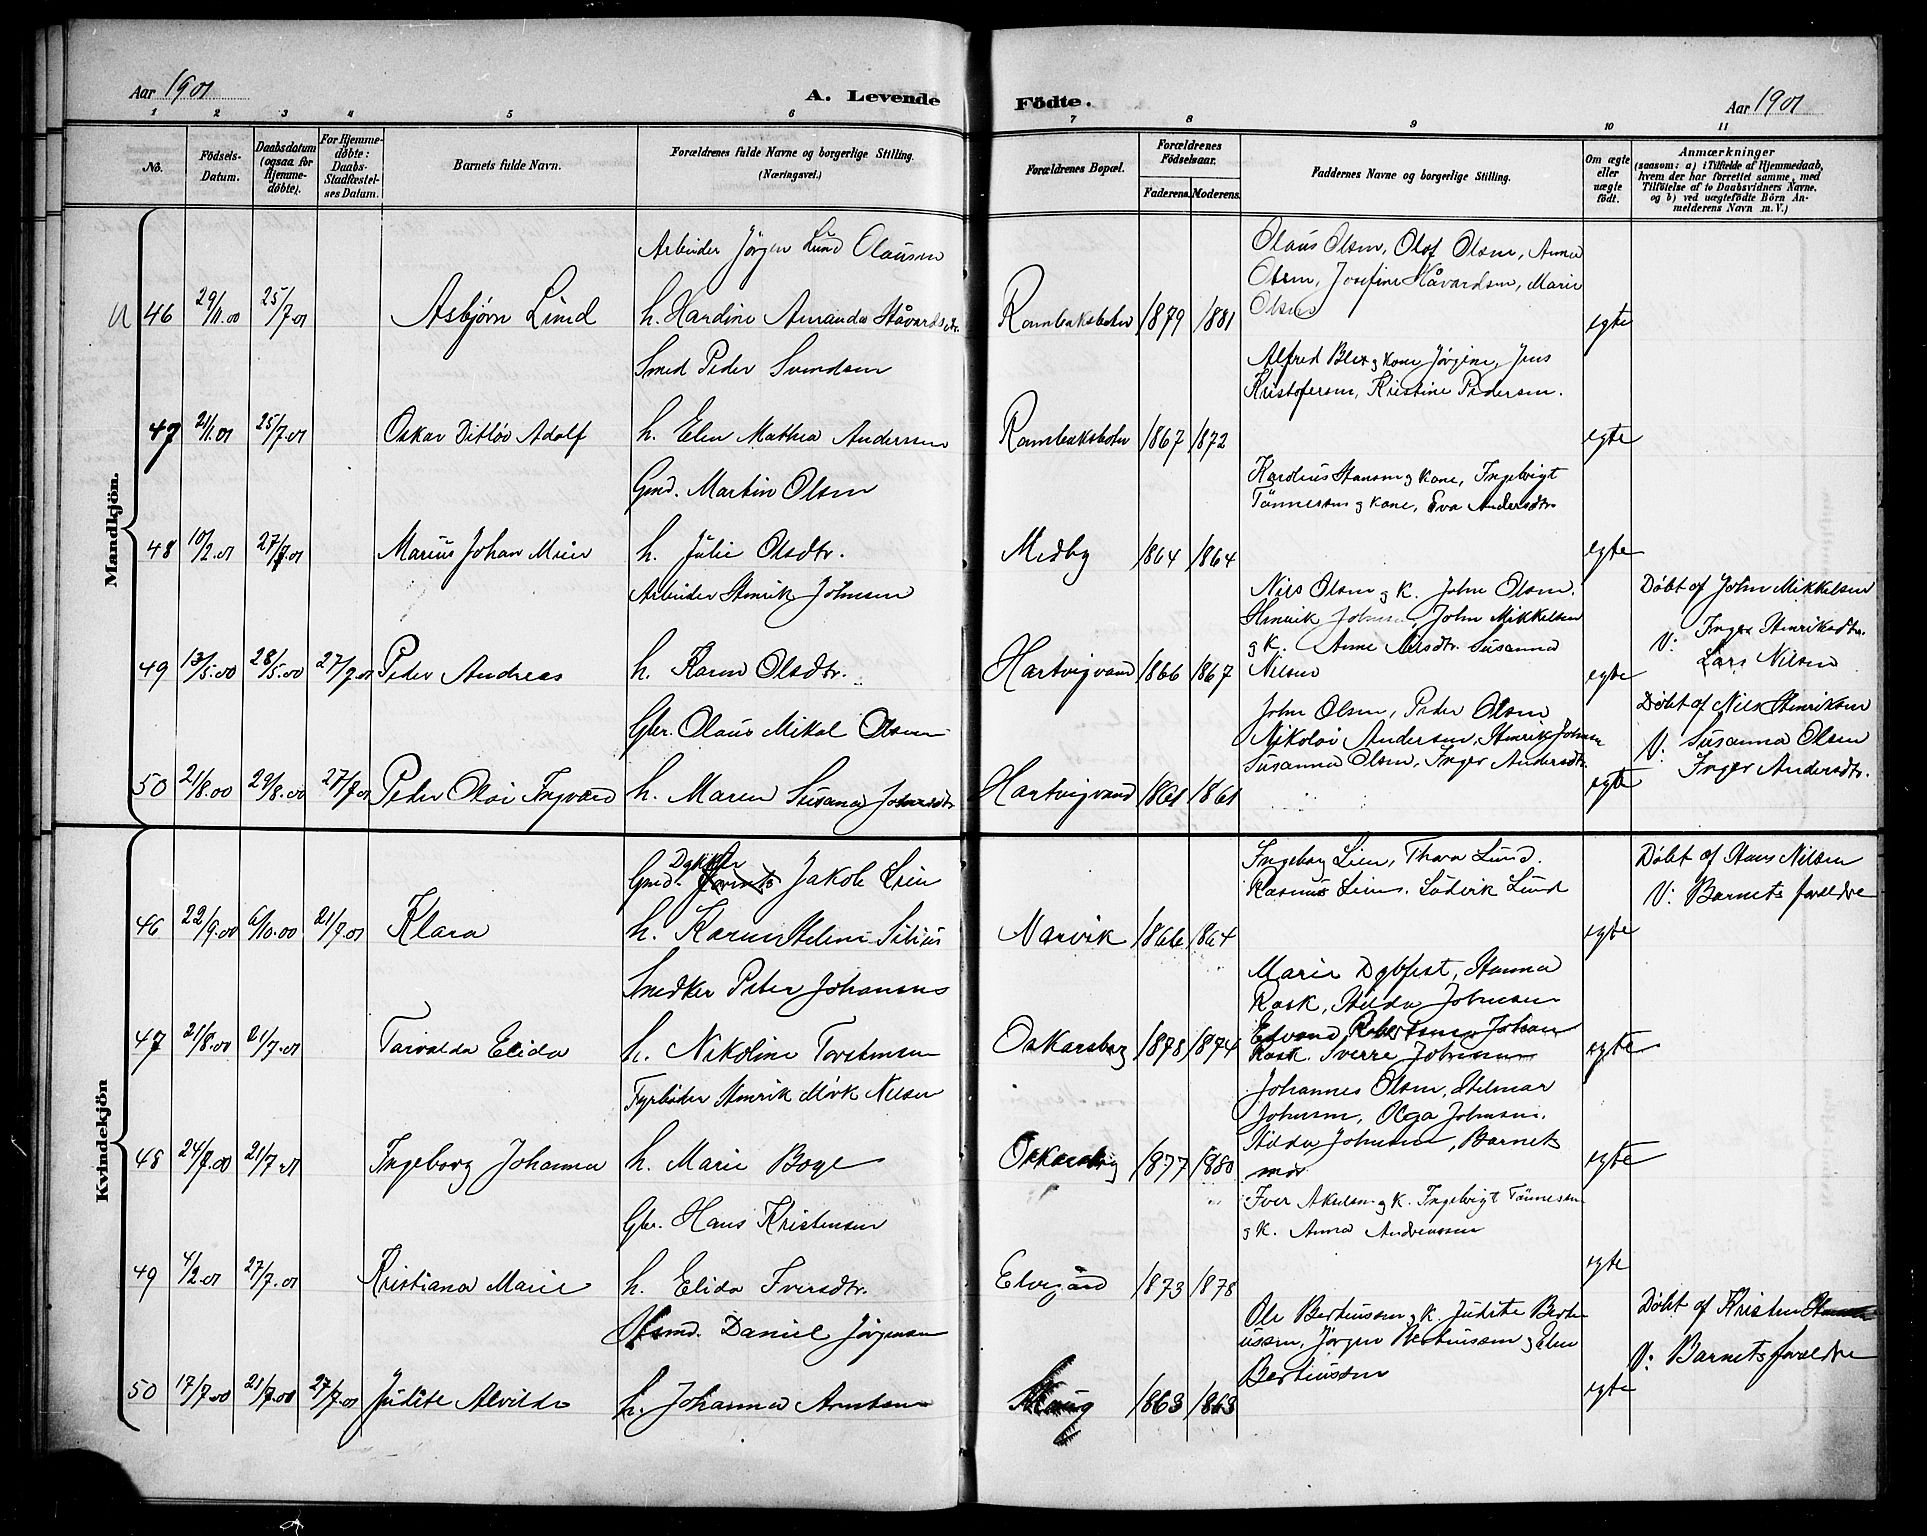 Aar 1901
A. Levende
Födte.
Aar 1901
1 2 3 4 5 6 7 8 9 10 11
No.
Födsels-Datum.
Daabsdatum (ogsaa for Hjemmedöbte).
For Hjemmedöbte: Daabs-Stadfæstelses Datum.
Barnets fulde Navn.
Forældrenes fulde Navne og borgerlige Stilling. (Næringsvei.)
Forældrenes Bopæl.
Forældrenes Födselsaar.
Faderens. Moderens.
Faddernes Navne og borgerlige Stilling.
Om ægte eller uægte födt.
Anmærkninger
(saasom: a) i Tilfælde af Hjemmedaab, hvem der har forrettet samme, med Tilföielse af to Daabsvidners Navne, og b) ved uægtefödte Börn Anmelderens Navn m. V.)
Mandkjön.
46 29/11.00 25/7.01 Asbjørn Lund
Arbeider Jörgen Lund Olausen
h. Hardine Amanda Håvardsdtr.
Rombaksbotn 1879 1881
Olaus Olsen, Olof Olsen, Anna
Olsen, Josefine Håvardsen, Marie
Olsen
egte
47 21/1.01 25/7.01 Oskar Ditløv Adolf
Smed Peder Svendsen
h. Elen Mathea Andersen
Rombaksbotn 1867 1872
Alfred Blix og kone Jørgine, Jens
Kristofersen, Kristine Pedersen.
egte
48 10/2.01 27/7.01 Marius Johan Meier
Gmd. Martin Olsen
h. Julie Olsdtr.
Medby 1864 1864
Karolius Hansen og kone, Ingebrigt
Tönnesen og kone, Eva Andersdtr
egte
49 13/5.00 28/5.00 27/7.01 Peder Andreas
Arbeider Henrik Johnsen
h. Karen Olsdtr.
Hartvigvand 1866 1867
Nils Olsen og K. John Olsen.
Henrik Johnsen, John Mikkelsen
og K. Anne Nilsdtr. Susanna
Nilsen
egte
Døbt af John Mikkelsen
V: Inger Henriksdtr.
Lars Nilsen
50 21/8.00 29/8.00 27/7.01 Peder Olai Ingvard
Gbr. Olaus Mikal Olsen
h. Maren Susana Johnsdtr
Hartvigvand 1861 1861
John Olsen, Peder Olsen
Nikolai Andersen, Henrik Johnsen
Susanna Olsen, Inger Andersdtr.
egte
Døbt af Nils Henriksen
V: Susanna Olsen
Inger Andersdtr.
Kvindekjön
46 22/9.00 6/10.00 21/7.01 Klara
Gmd. Jakob Lien
h. Karen Helene
Narvik 1866 1864
Ingeborg Lien, Thora Lund.
Rasmus Lien. Ludvik Lund
egte
Døbt af Hans Nilsen
V: Barnets forældre
47 21/8.00 21/7.01 Torvalda Elida
Snedker Peter Johansen
h. Nikoline Torstensen
Oskarsborg 1878 1874
Marie Dybfest, Hanna
Rask, Hilda Johnsen
Edvard Robertsen, Johan
Rask. Sverre Johnsen
egte
48 24/7.00 21/7.01 Ingeborg Johanna
Fyrbøder Henrik Mörk Nilsen
h. Marie Boye
Oskarsborg 1877 1880
Johannes Olsen, Hilmar
Johnsen, Olga Johnsen.
Hilda Johnsen, Barnets
mor
egte
49 4/2.01 27/7.01 Kristiana Marie
Gbr. Hans Kristensen
h. Elida Iversdtr.
Elvegård 1873 1878
Iver Akselsen og K. Ingebrigt Tönnesen
og K. Anna Andreassen
egte
50 17/7.00 21/7.00 27/7.01 Judite Alvilde
Daniel Jörgensen
h. Johanna Arntsen
1863 1863
Ole Bertiussen og K. Judite Berti-
ussen, Jörgen Bertiussen og Elen
Bertiussen
egte
Døbt af Kristen
V: Barnets forældre